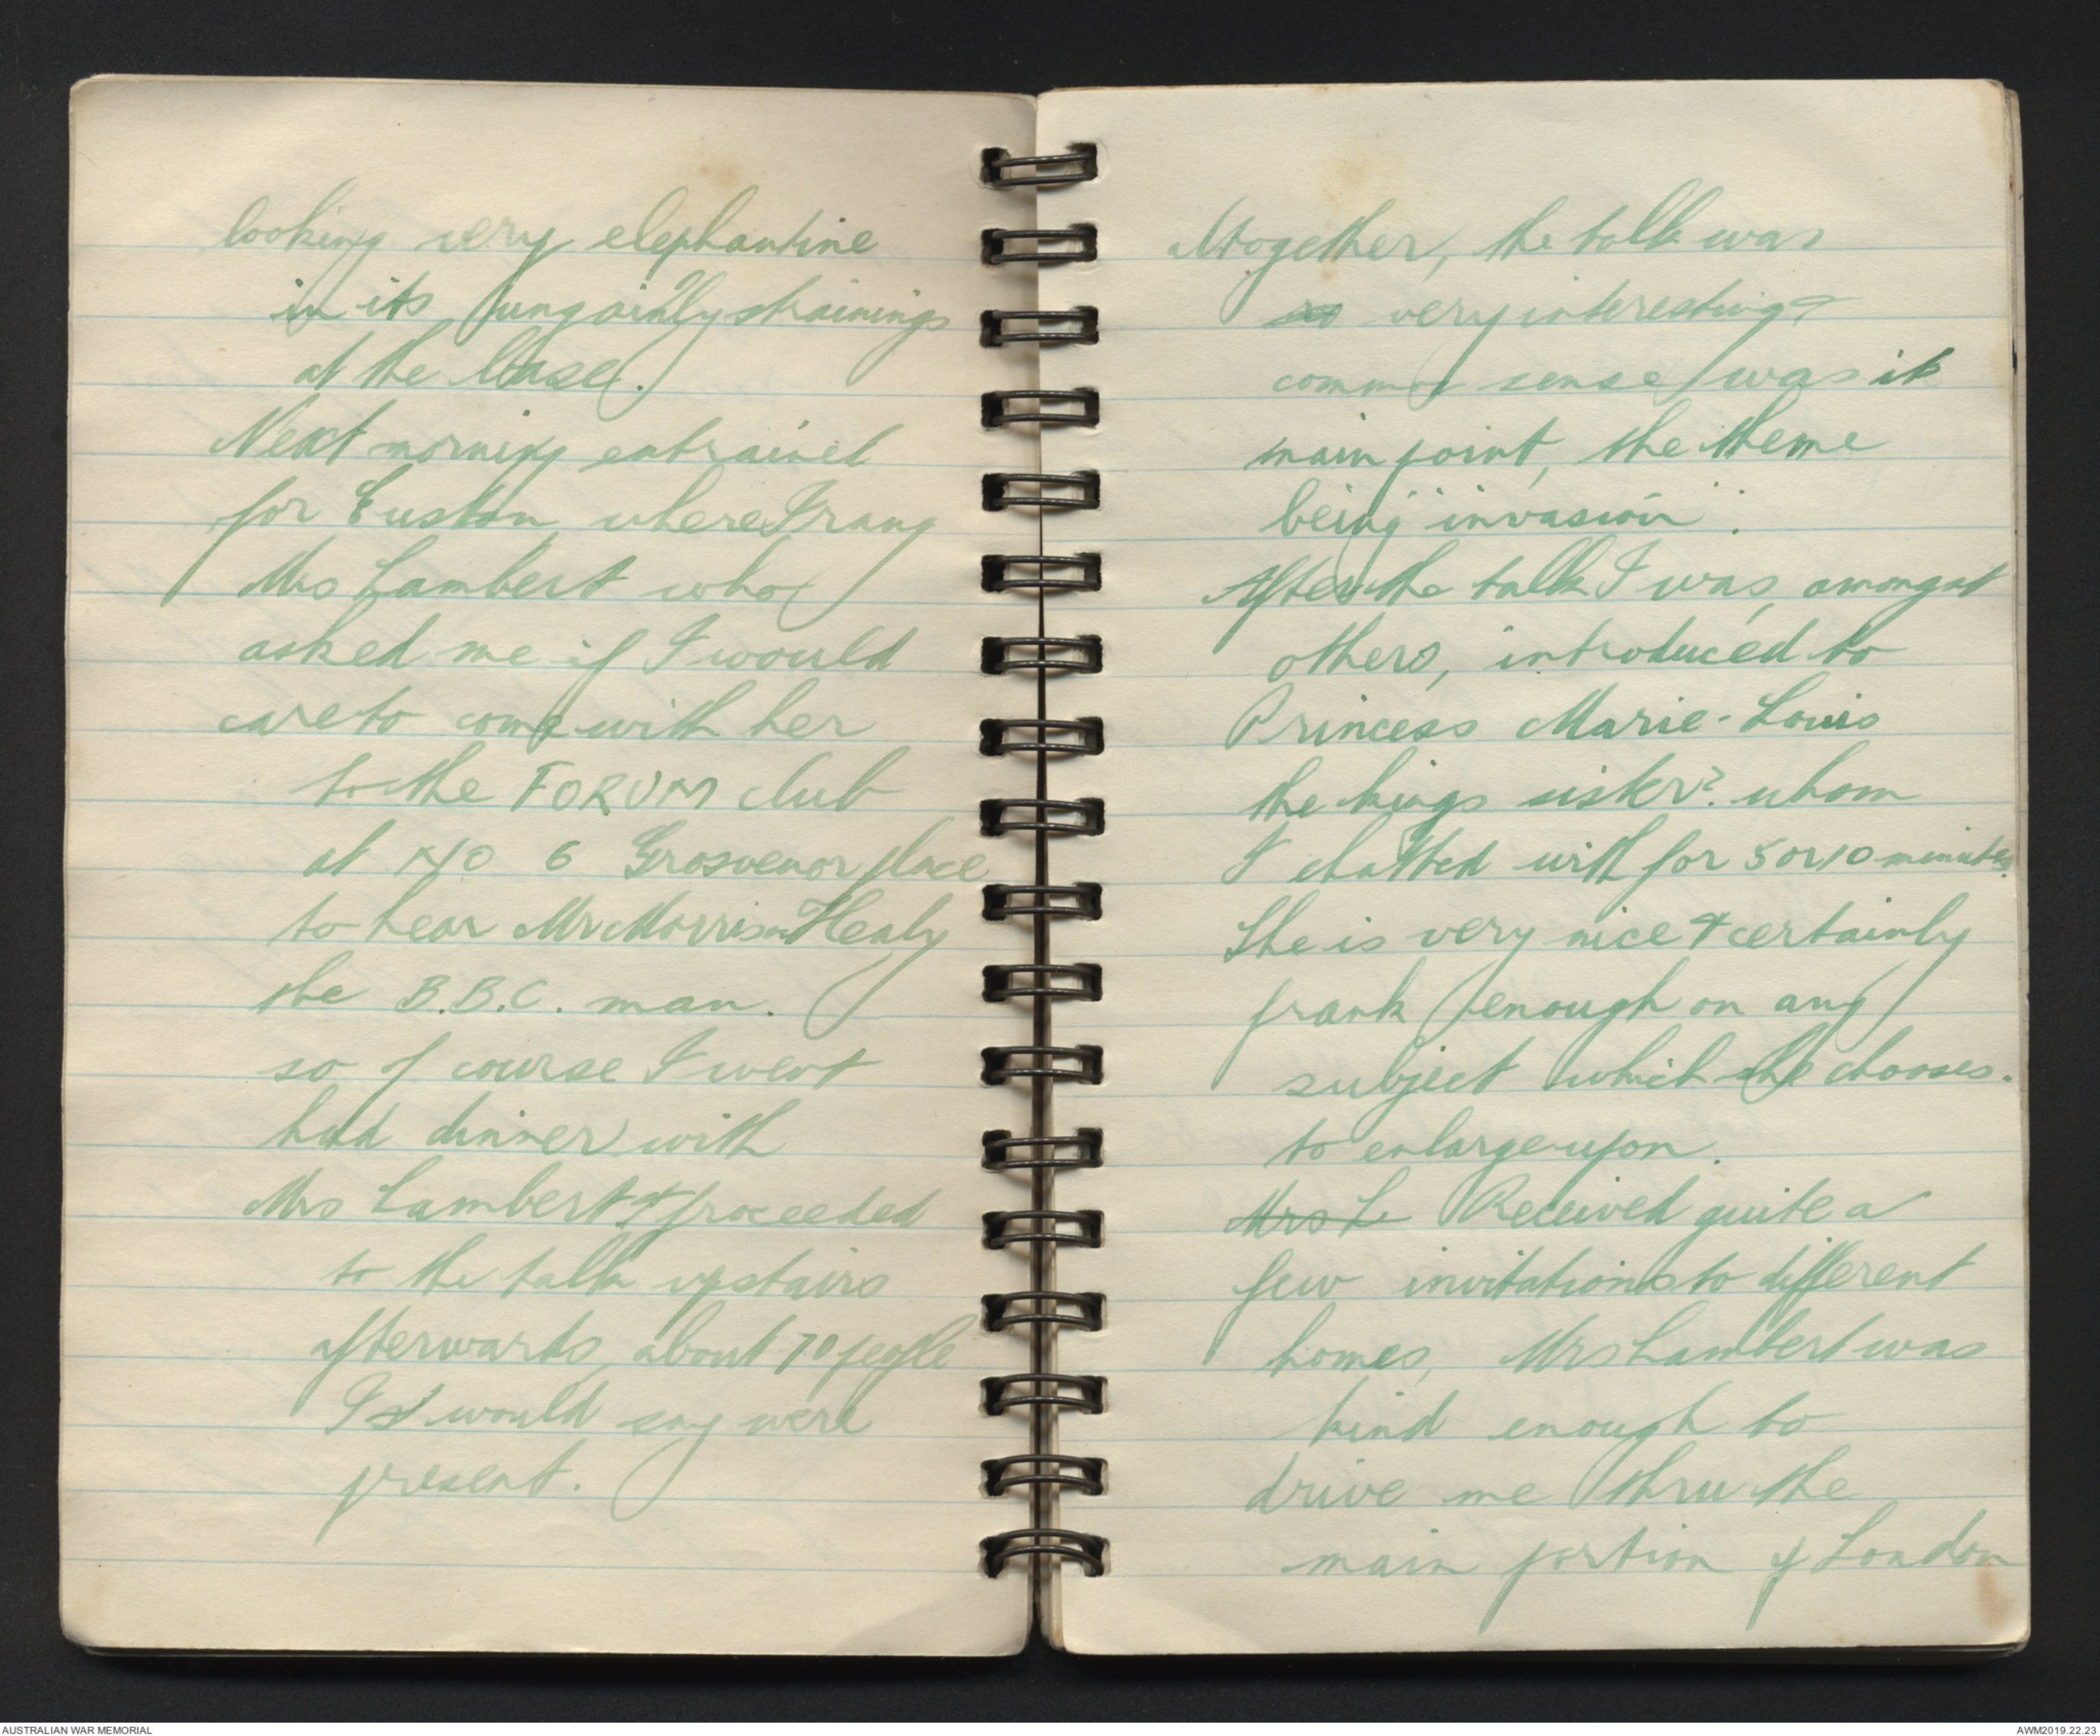 looking very elephantine
in its ungainly strainings
at the base.
Next morning entrained
for Euston, where I rang
Mrs Lambert who
asked me if I would
care to come with her
to the FORUM club
at NO 6 Grosvenor place
to hear Mr Morrison Healy
the B.B.C. man.
so of course I went
had dinner with
Mrs Lambert & proceeded
to the talk upstairs
afterwards, about 70 people
I would say were
present.
Altogether, the talk was
so very interesting &
common sense was it
main point, the theme
being "invasion".
After the talk I was, amongst
others, introduced to
Princess Marie-Louis
the kings sister? whom
I chatted with for 5 or 10 minutes.
She is very nice & certainly
frank enough on any
subject which she chooses.
to enlarge upon.
Mrs L Received quite a
few invitations to different
homes, Mrs Lambert was
kind enough to
drive me thru the
main portion of London
AUSTRALIAN WAR MEMORIAL
AWM2019.22.23